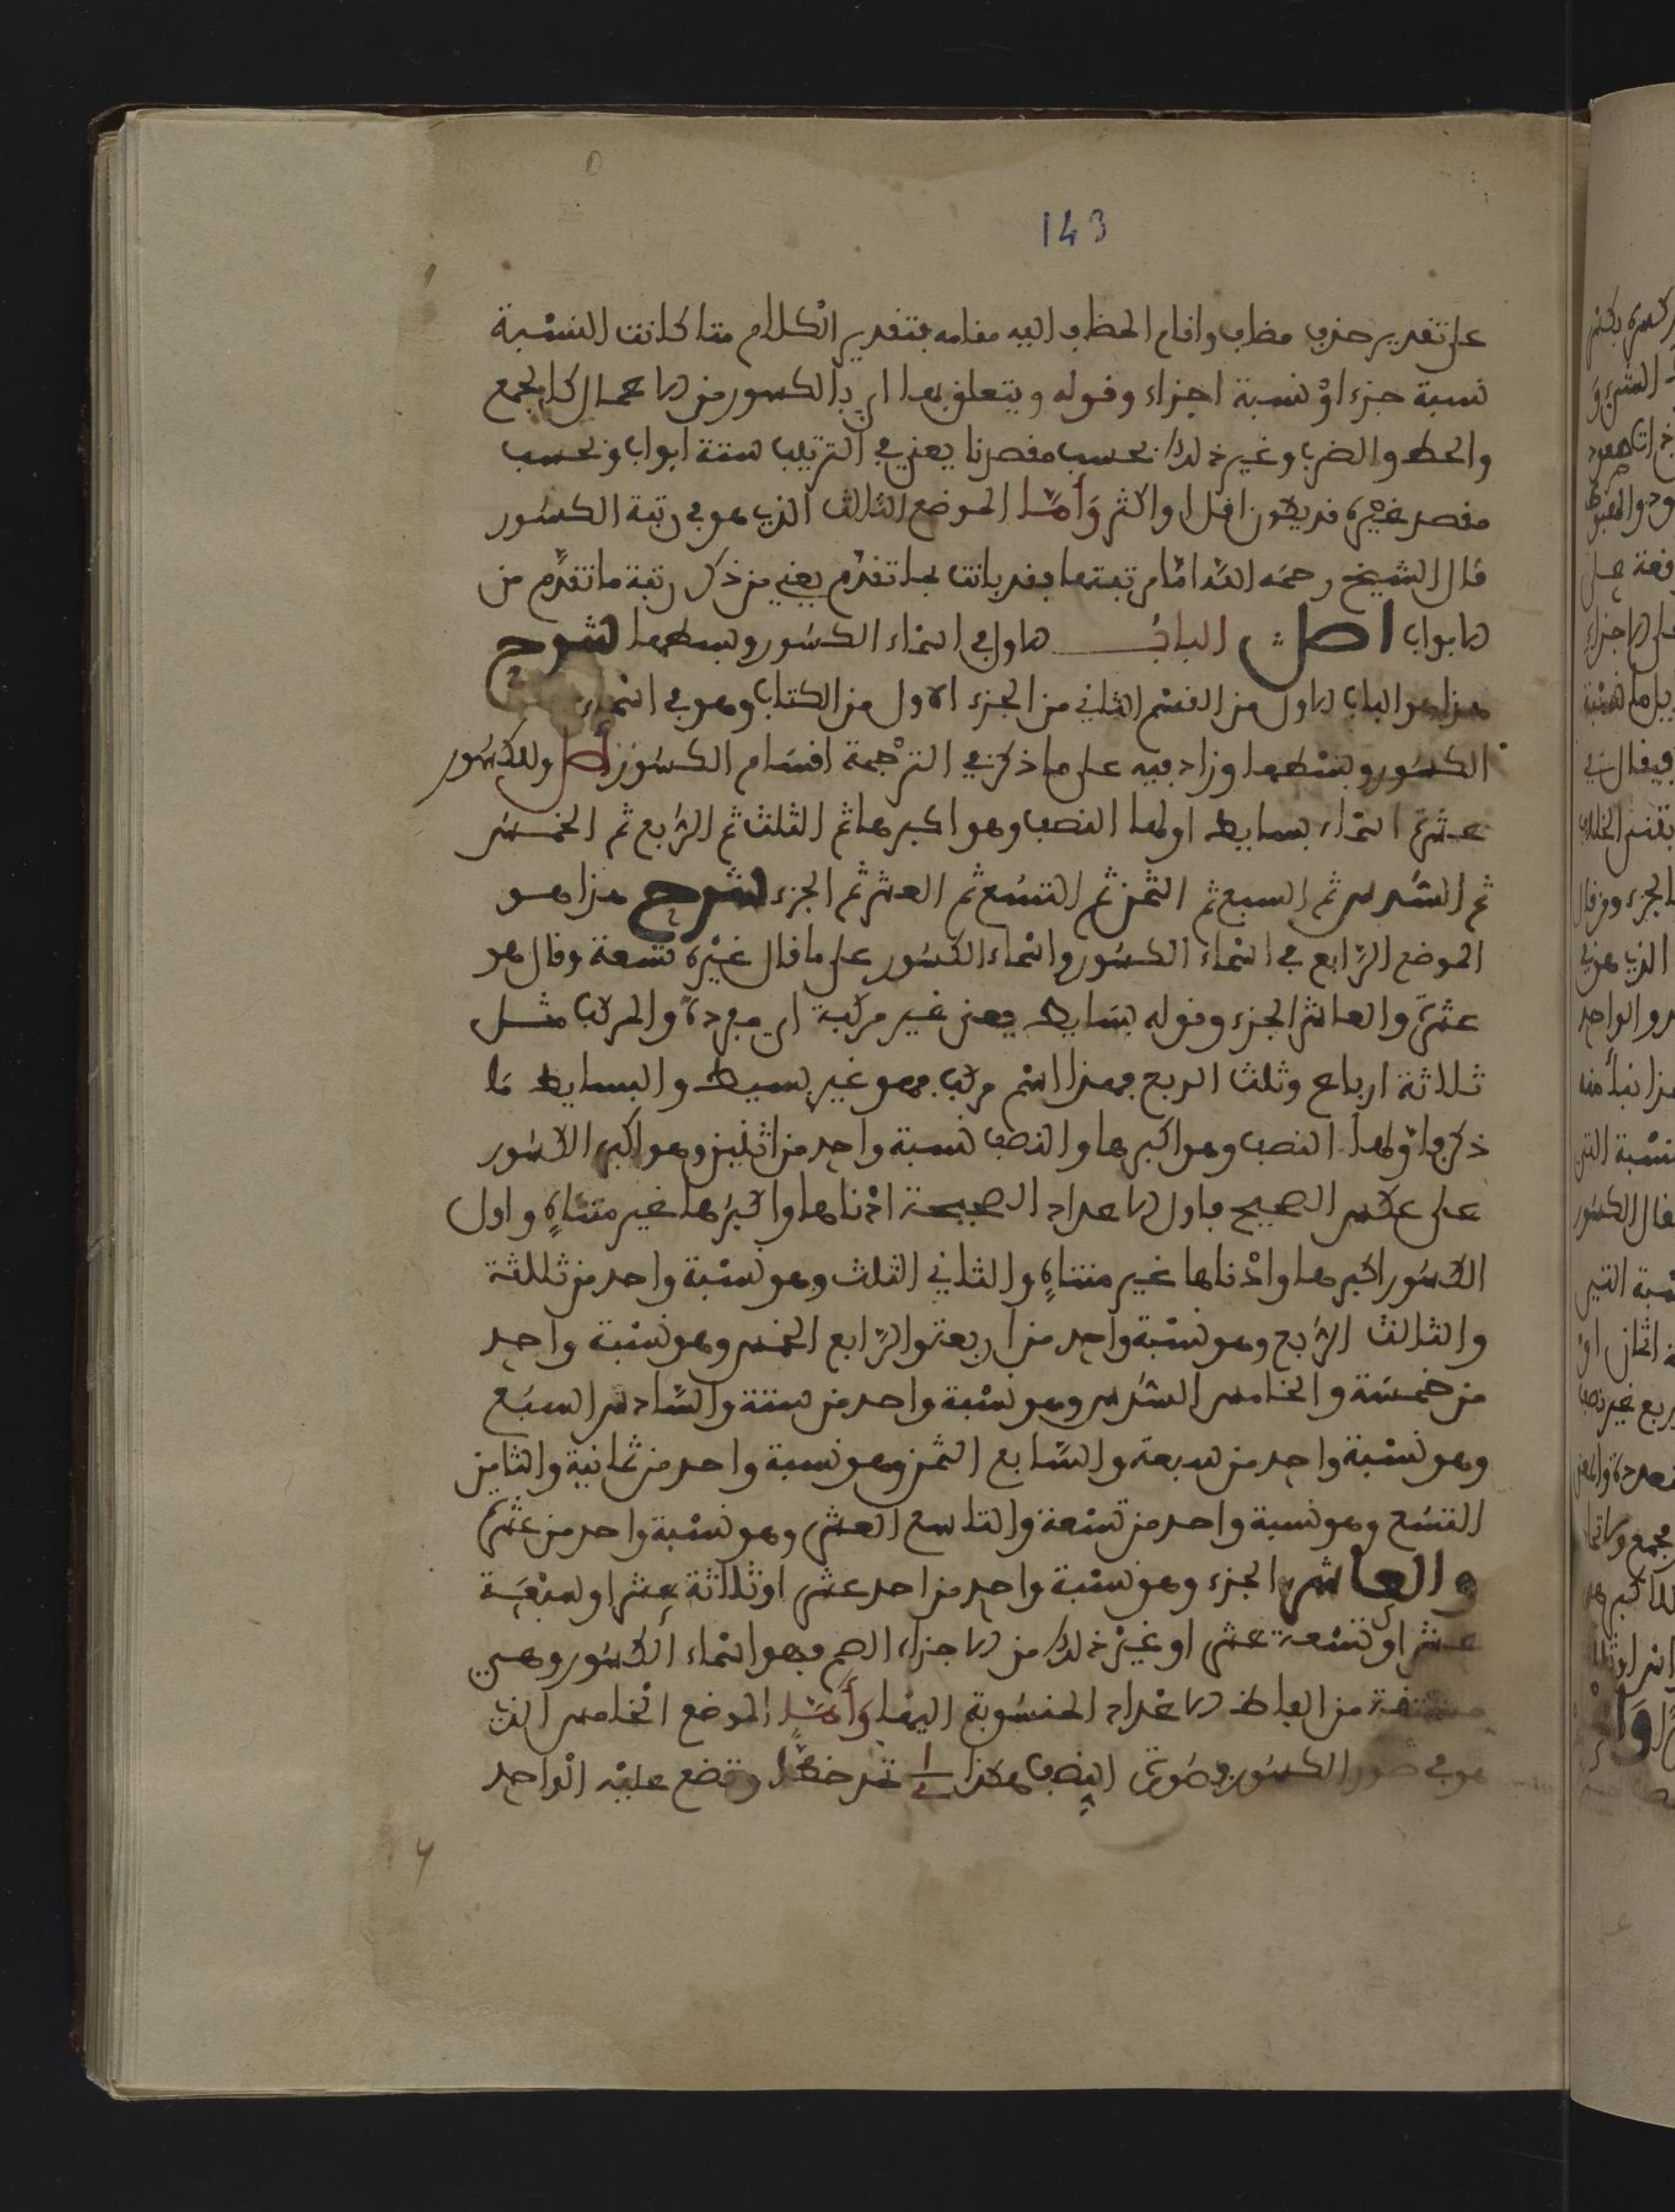 143
على تقدير حذف مضاف واقام المضاف اليه مقامه بتقدير الكلام متا كانت النسبة
نسبة جزء اوْ نسبة اجزاء وقوله ويتعلق بهـا اي بالكسور من الاعمال كالجمع
والحط والضرب وغير ذلك بحسب مقصدنا يعني في الترتيب ستة ابواب وبحسب
مقصد غيره قد يكون اقل او اكثر وَأَمَّا الموضع الثالث الذي هو في رتبة الكسور
قال الشيخ رحمه الله امّا مرتبتها فقد بانت بما تقدم يعني من ذكر رتبة ما تقدّم من
الابواب اصل الباب الاول في اسماء الكسور وبسطها شرح
هذا هو الباب الاول من القسم الثاني من الجزء الاول من الكتاب وهو في اسماء
الكسور وبسْطها وزاد فيه على ما ذكر في الترْجمة اقسَام الكسُور اصل وللكسُور
عشرة اسماء بسايط اولها النصف وهو اكبرها ثم الثلث ثم الرّبع ثم الخمس
ثم السّدس ثم السبع ثم الثمن ثم التسُع ثم العشر ثم الجزء شرح هذا هو
الموضع الرّابع في اسْماء الكسُور واسْماء الكسُور على ما قال غيْره تسعة وقال هو
عشرة والعاشر الجزء وقوله بسَايط يعني غير مركبة اي مفردة والمركب مثل
ثلاثة ارباع وثلث الربع فهذا اسْم مركب فهو غير بسيط والبسايط مَا
ذكر فاوّلها النصف وهو اكبرها والنصف نسبة واحد من اثنين وهو اكبر الكسُور
على عكس الصحيح فاول الاعداد الصحيحة ادْناها واكبَرها غير متناهٍ واول
الكسُور اكبرها وادْناها غير متناهٍ والثاني الثلث وهو نسْبة واحد من ثلثة
والثالث الرّبع وهو نسْبة واحد من اربعة والرّابع الخمس وهو نسْبة واحد
من خمسَة والخامس السّدس وهو نسْبة واحد من ستة والسّادس السبع
وهو نسْبة واحد من سبعة والسّابع الثمن وهو نسبة واحد من ثمانية والثامن
التسُع وهو نسبة واحد من تسْعة والتاسع العشر وهو نسْبة واحد من عشرة
والعاشر الجزء وهو نسْبة واحد من احد عشر او ثلاثة عشر او سبْعَة
عشر او تسْعة عشر او غيْر ذلك من الاجزاء الصم فهو اسْماء الكسُور وهي
مشتقة من الفاظ الاعْداد المنسُوبة اليْها وَأَمَّا الموضع الخامس الذي
هو في صور الكسُور فصُورة النصف هكذا ١/٢ تمد خطًّا وتضع عليْه الواحد